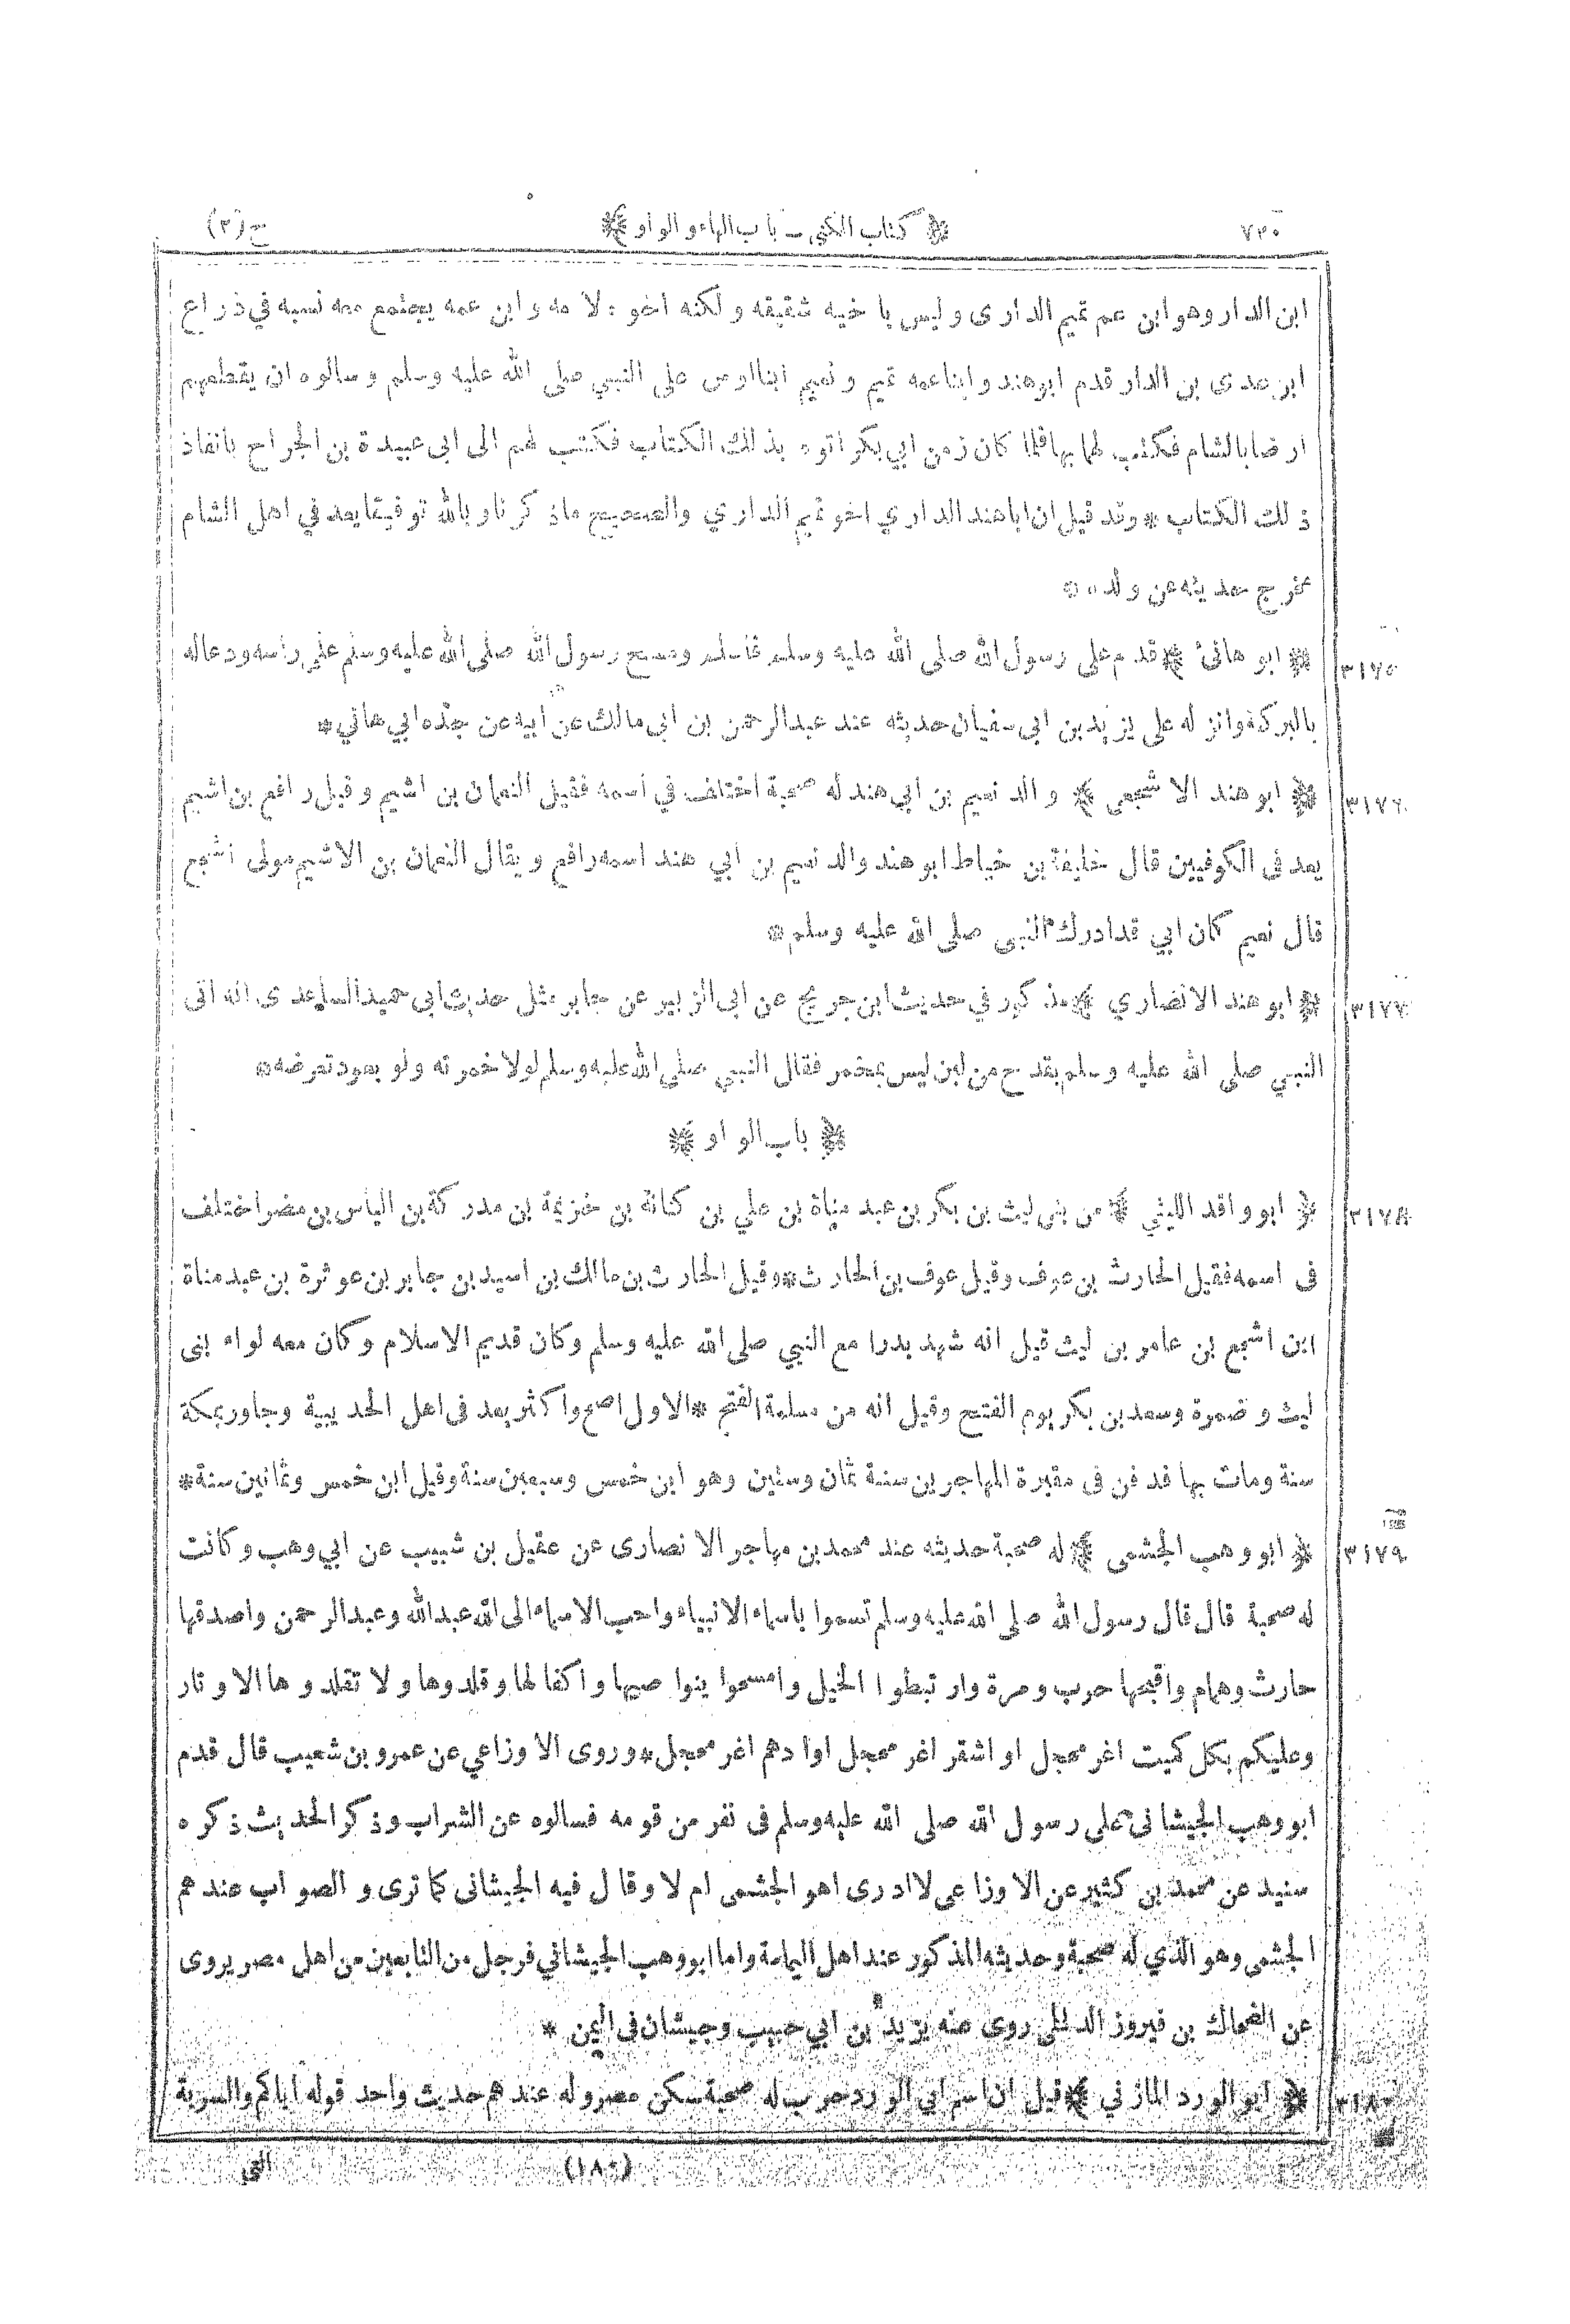 ٧٢٠ ﴿ كتاب الكنى – باب الهاء والواو ﴾ ج (٢)
ابن الدار وهو ابن عم تميم الدارى وليس باخيه شقيقه ولكنه اخوه لامه وابن عمه يجتمع معه نسبه في ذراع
ابن عدى بن الدار قدم ابو هند وابنا عمه تميم ونعيم ابنا اوس على النبي صلى الله عليه وسلم وسالوه ان يقطعهم
ارضا بالشام فكتب لهما بها فلما كان زمن ابي بكر اتوه بذلك الكتاب فكتب لهم الى ابى عبيدة بن الجراح بانفاذ
ذلك الكتاب * وقد قيل ان ابا هند الداري اخو تميم الداري والصحيح ما ذكرنا وبالله توفيقنا يعد في اهل الشام
مخرج حديثه عن ولده *
٣١٧٥ ﴿ ابو هانئ ﴾ قدم على رسول الله صلى الله عليه وسلم فاسلم ومسح رسول الله صلى الله عليه وسلم على راسه ودعا له
بالبركة وانزله على يزيد بن ابي سفيان حديثه عند عبد الرحمن بن ابى مالك عن ابيه عن جده ابي هاني *
٣١٧٦ ﴿ ابو هند الاشجعى ﴾ والد نعيم بن ابي هند له صحبة اختلف في اسمه فقيل النعمان بن اشيم وقيل رافع بن اشيم
يعد فى الكوفيين قال خليفة بن خياط ابو هند والد نعيم بن ابي هند اسمه رافع ويقال النعمان بن الاشيم مولى اشجع
قال نعيم كان ابي قد ادرك النبى صلى الله عليه وسلم *
٣١٧٧ ﴿ ابو هند الانصاري ﴾ مذكور في حديث ابن جريج عن ابى الزبير عن جابر مثل حديث ابى حميد الساعدى انه اتى
النبي صلى الله عليه وسلم بقدح من لبن ليس بمخمر فقال النبي صلى الله عليه وسلم لولا خمرته ولو بعود تعرضه *
﴿ باب الواو ﴾
٣١٧٨ ﴿ ابو واقد الليثي ﴾ من بنى ليث بن بكر بن عبد مناة بن علي بن كنانة بن خزيمة بن مدركة بن الياس بن مضر اختلف
فى اسمه فقيل الحارث بن عوف وقيل عوف بن الحارث * وقيل الحارث بن مالك بن اسيد بن جابر بن عوثرة بن عبد مناة
ابن اشجع بن عامر بن ليث قيل انه شهد بدرا مع النبي صلى الله عليه وسلم وكان قديم الاسلام وكان معه لواء بنى
ليث وضمرة وسعد بن بكر يوم الفتح وقيل انه من مسلمة الفتح * الاول اصح واكثر يعد فى اهل الحديبية وجاور بمكة
سنة ومات بها فدفن فى مقبرة المهاجرين سنة ثمان وستين وهو ابن خمس وسبعين سنة وقيل ابن خمس وثمانين سنة *
٣١٧٩ ﴿ ابو وهب الجشمى ﴾ له صحبة حديثه عند محمد بن مهاجر الانصارى عن عقيل بن شبيب عن ابي وهب وكانت
له صحبة قال قال رسول الله صلى الله عليه وسلم تسموا باسماء الانبياء واحب الاسماء الى الله عبد الله وعبد الرحمن واصدقها
حارث وهمام واقبحها حرب ومرة وارتبطوا الخيل وامسحوا بنواصيها واكفالها وقلدوها ولا تقلدوها الاوتار
وعليكم بكل كميت اغر محجل او اشقر اغر محجل او ادهم اغر محجل * وروى الاوزاعي عن عمرو بن شعيب قال قدم
ابو وهب الجيشانى على رسول الله صلى الله عليه وسلم فى نفر من قومه فسالوه عن الشراب وذكر الحديث ذكره
سنيد عن محمد بن كثير عن الاوزاعى لا ادرى اهو الجشمى ام لا وقال فيه الجيشانى كما ترى والصواب عندهم
الجشمى وهو الذي له صحبة وحديثه المذكور عند اهل اليمامة واما ابو وهب الجيشاني فرجل من التابعين من اهل مصر يروى
عن الضحاك بن فيروز الديلمى روى عنه يزيد بن ابي حبيب وجيشان فى اليمن *
٣١٨٠ ﴿ ابو الورد المازني ﴾ قيل ان اسم ابي الورد حرب له صحبة سكن مصر وله عندهم حديث واحد قوله اياكم والسرية
(١٨٠) التى